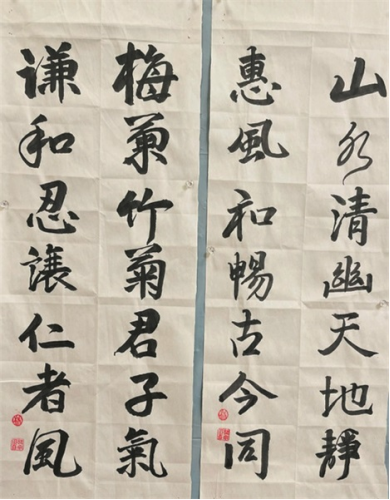 山水清幽天地靜
惠風和暢古今同
梅蘭竹菊君子氣
謙和忍讓仁者風